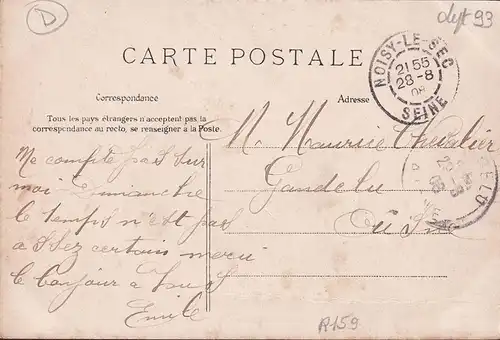 D
dept 93
CARTE POSTALE
NOISY-LE-SEC
21 55
28-8
08
SEINE
Correspondance
Adresse
Tous les pays étrangers n'acceptent pas la
correspondance au recto, se renseigner à la Poste.
M. Maurice Chevalier
Gandelu
Ne compte pas sur
moi Dimanche
le temps n'est pas
assez certain merci
le bonjour à tous
Emile
R159